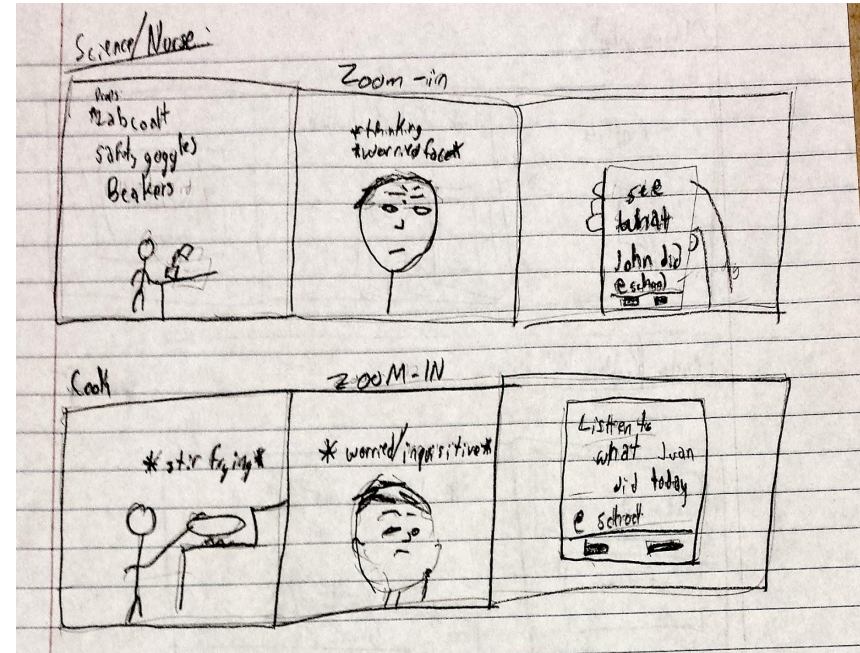 Science/Nurse:
Zoom-in
Props:
*Labcoat
Safety goggles
Beakers
*thinking
*worried face*
see
what
John did
@ school
Cook
ZOOM-IN
*stir frying*
*worried/inquisitive*
Listen to
what Juan
did today
@ school